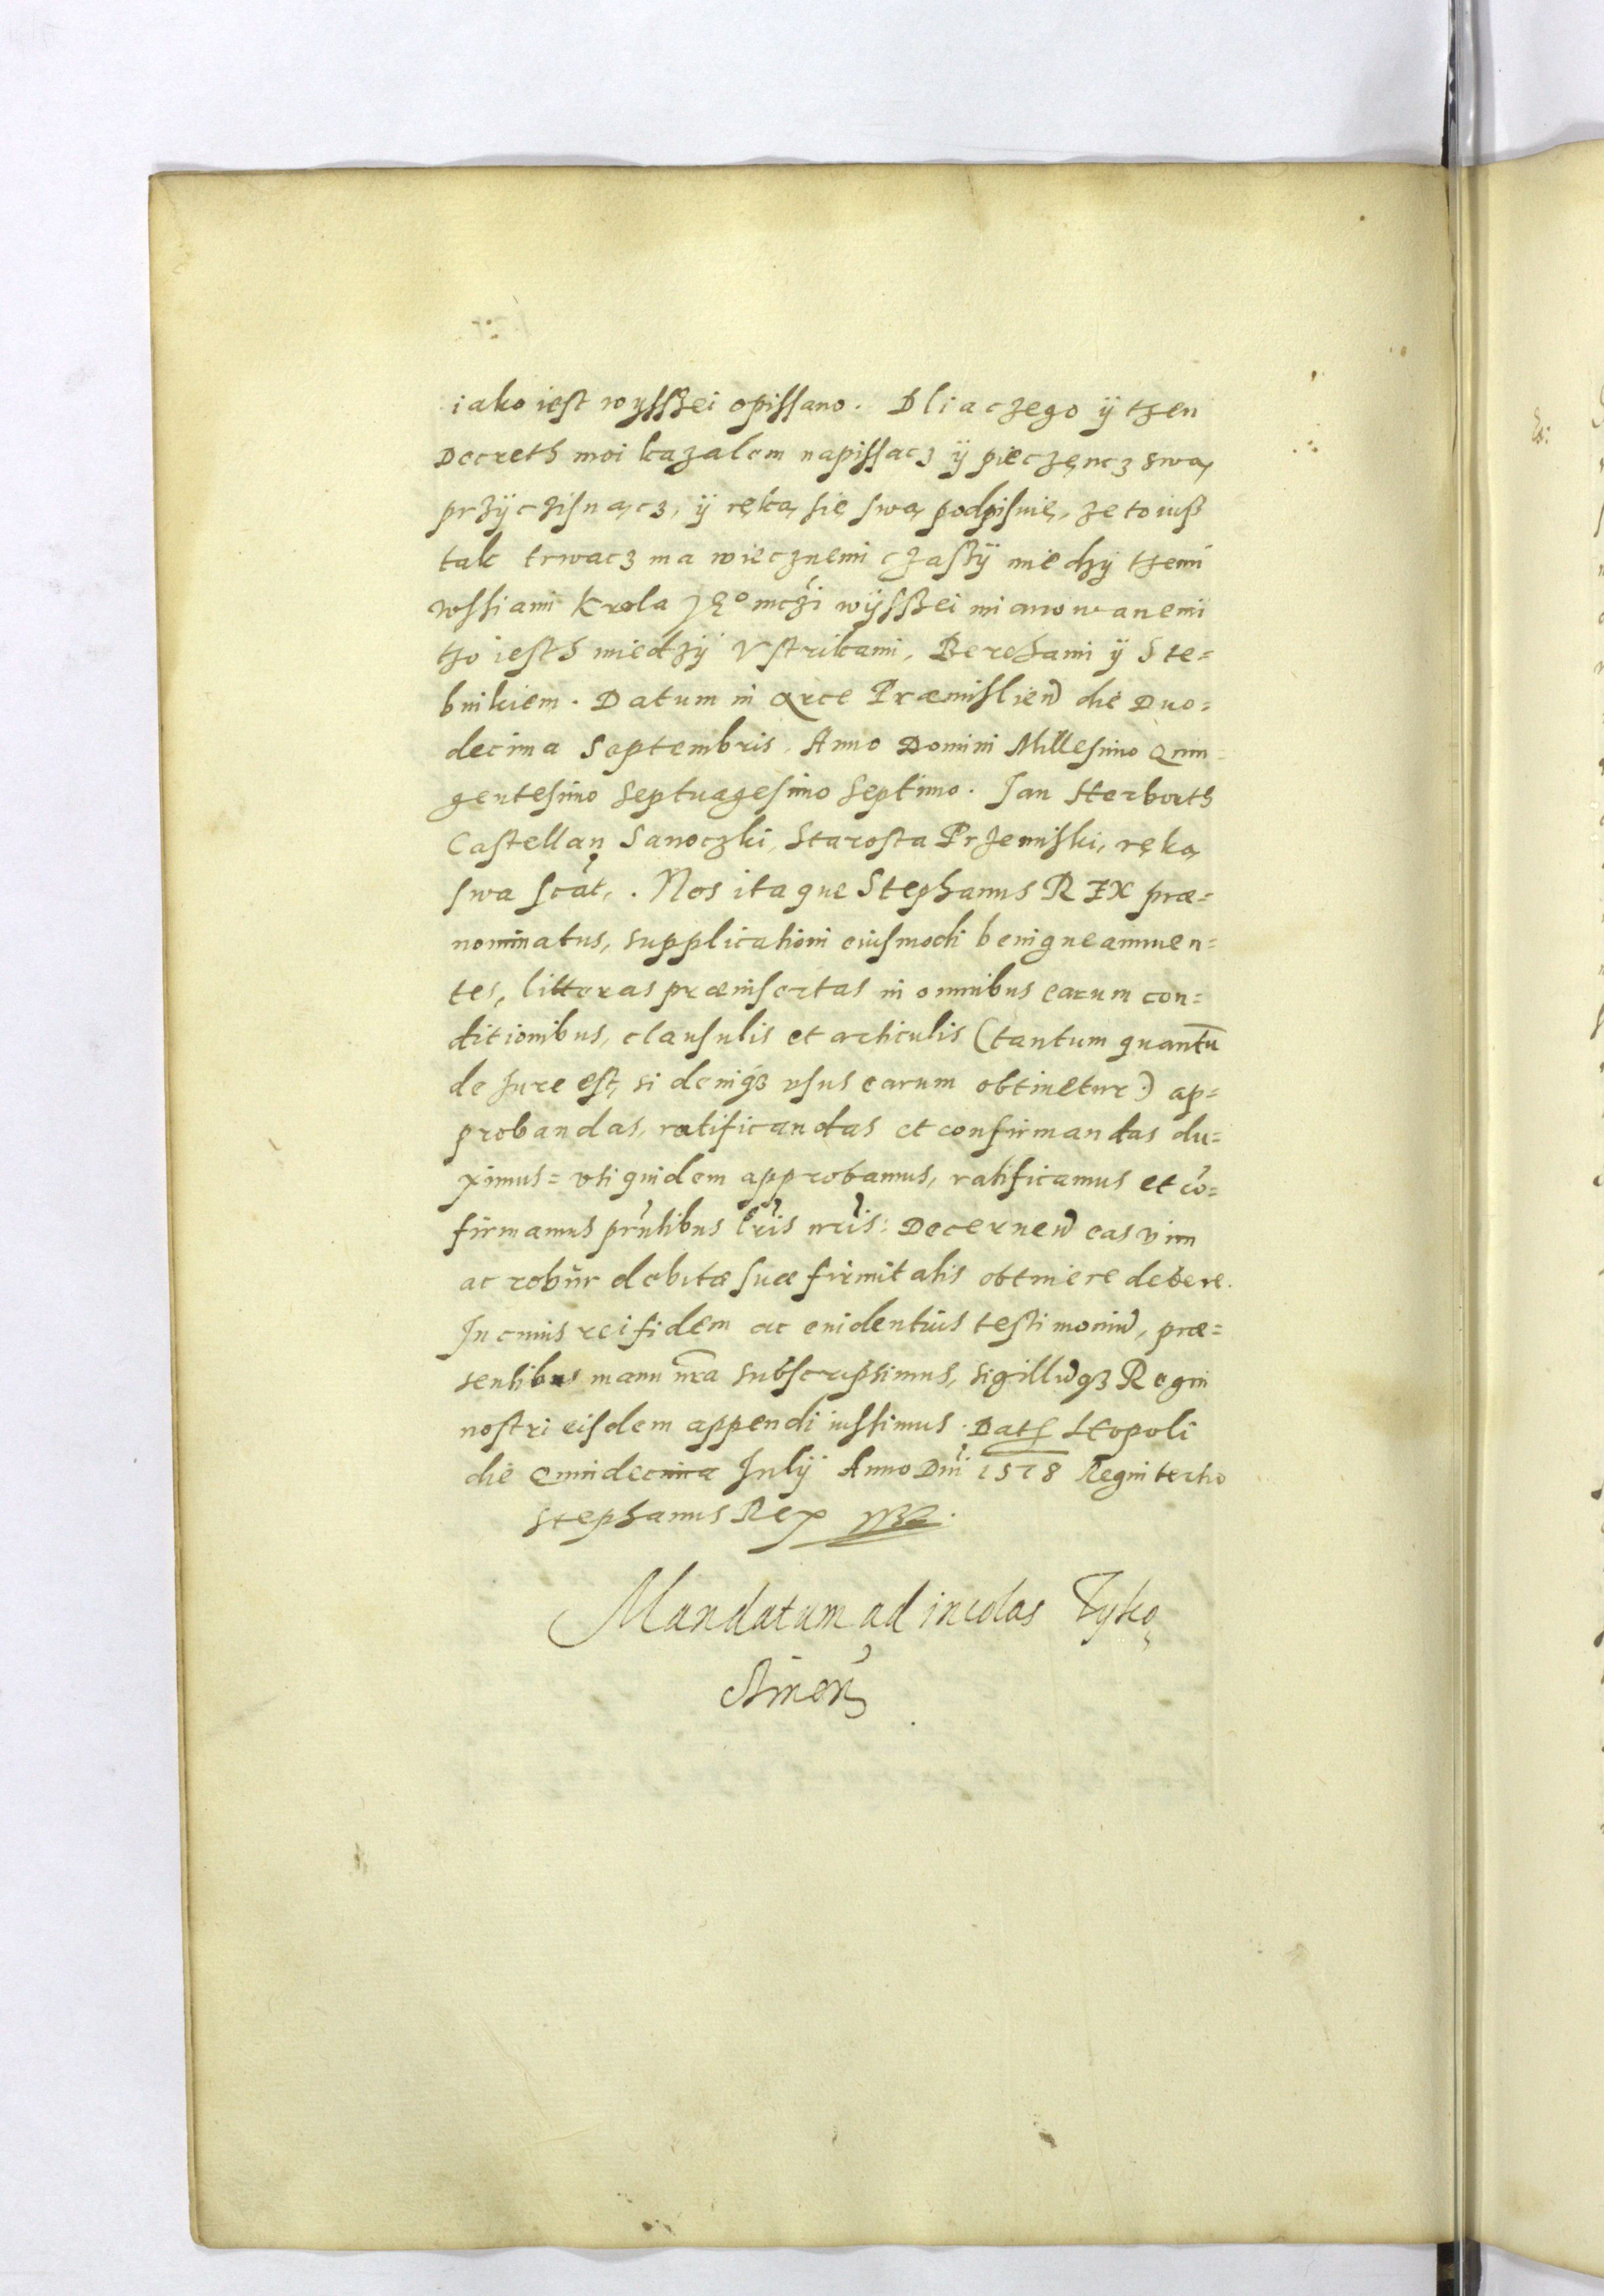 iako iest wyssßei opissano. Dliaczego ÿ tzen
Decreth moi kazalem napissacz ÿ pieczęncz swą
przÿczisnącz, ÿ ręką się swą podpisuię, że to iuß
tak trwacz ma wiecznemi czaßÿ miedzÿ tzemi
wssiami Krola Jego mczi wÿsßei mianowanemi
tzo iesth miedzÿ Vstrikami, Berehami ÿ Ste=
bnikiem. Datum in Arce Præmislien die Duo=
decima Septembris, Anno Domini Millesimo Quin=
gentesimo Septuagesimo Septimo. Jan Herborth
Castellan Sanoczki, Starosta Przemiski, ręką
swa scat, . Nos itaque Stephanus REX præ=
nominatus, supplicationi eiusmodi benigne annuen=
tes, litteras præinsertas in omnibus earum con=
ditionibus, clausulis et articulis (tantum quantū
de Jure est, si deniqз vsus earum obtinetur) ap=
probandas, ratificandas et confirmandas du=
ximus= vti quidem approbamus, ratificamus et cō=
firmamus prntibus lris nris: Decernen eas vim
ac robur debitæ suæ firmitatis obtinere debere.
In cuius rei fidem ac euidentius testimoniū, præ=
sentibus manu nra subscripsimus, sigillūqз Regni
nostri eisdem appendi iussimus. Dat Leopoli
die Quindecima Julÿ Anno Dni 1578 Regni tertio
Stephanus Rex
Mandatum ad incolas Tyko
ctinen